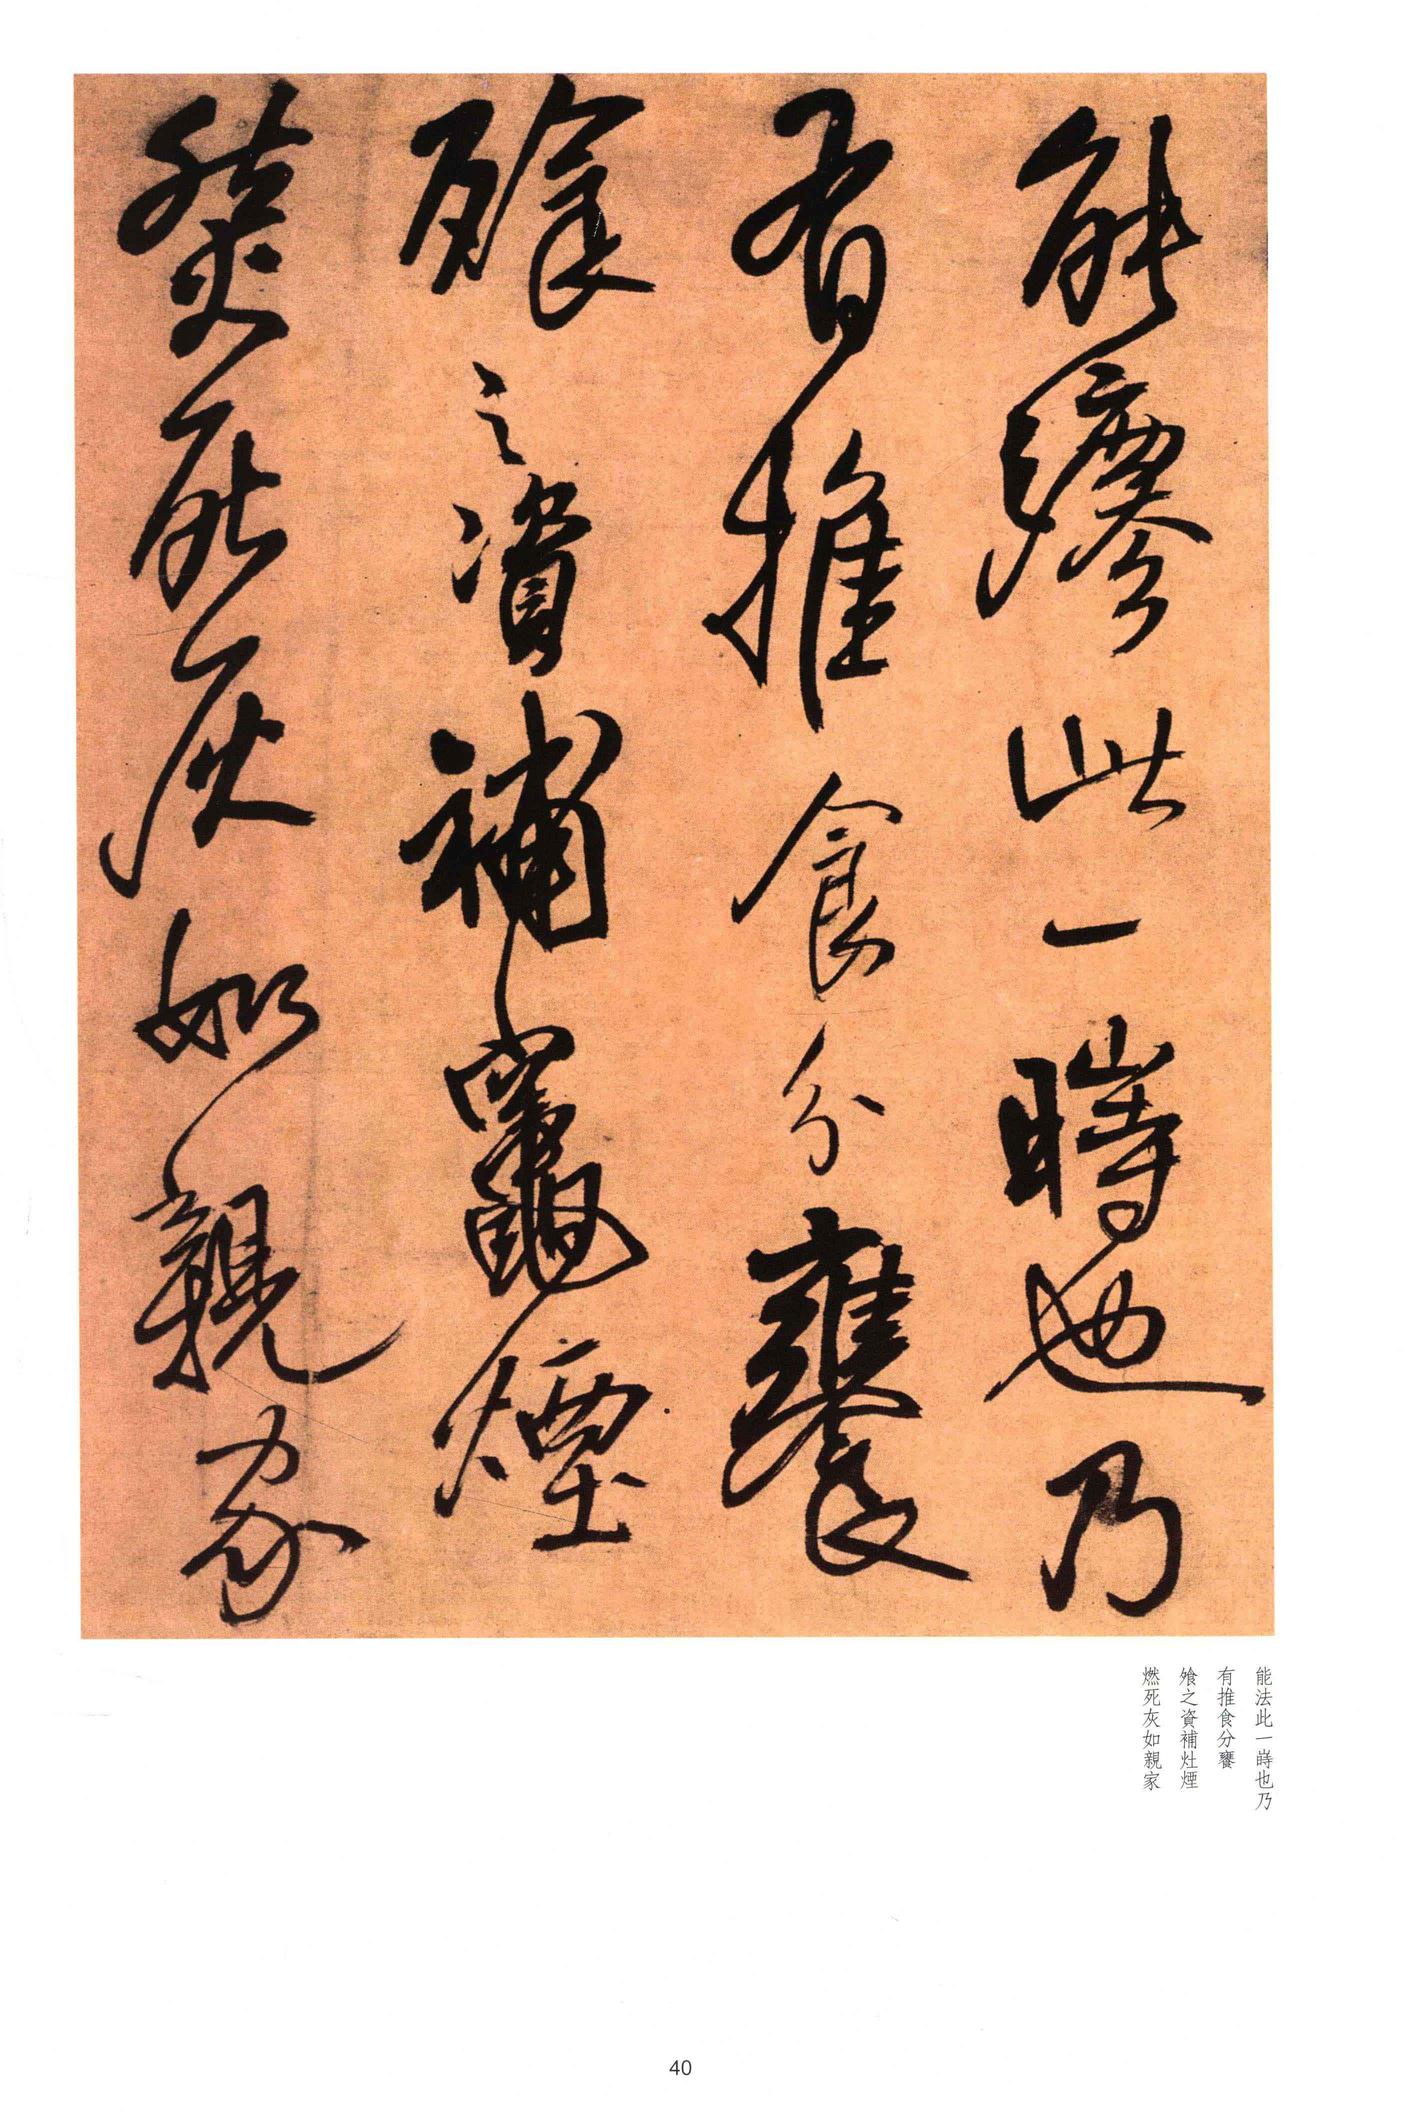 能此一時也乃
有推食分饔
飱之資補竈煙
然死灰如親家
能法此一嵵也乃
有推食分饔
飱之資補灶煙
燃死灰如親家
40